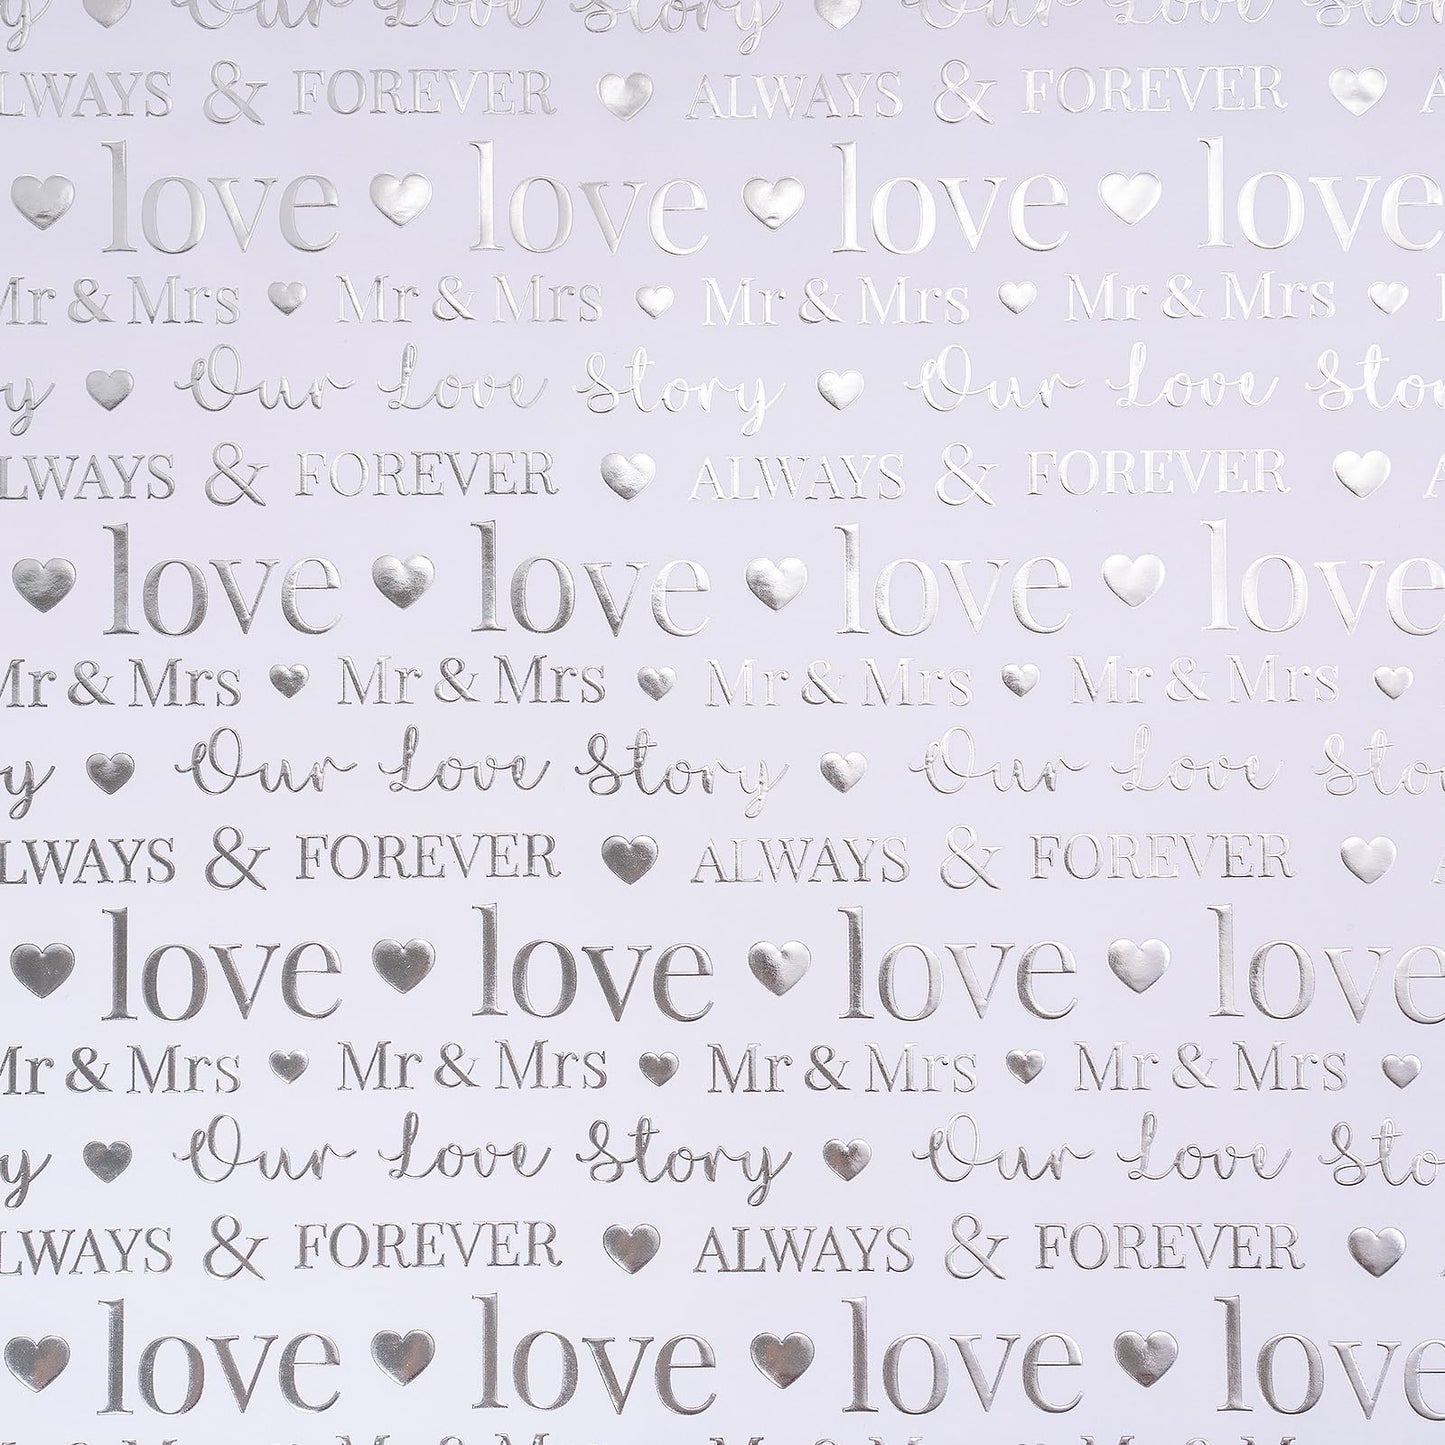 y Our Love Story Our Love Sto
LWAYS & FOREVER ALWAYS & FOREVER A
love love love love
Mr & Mrs Mr & Mrs Mr & Mrs Mr & Mrs
y Our Love Story Our Love Sto
LWAYS & FOREVER ALWAYS & FOREVER A
love love love love
Mr & Mrs Mr & Mrs Mr & Mrs Mr & Mrs
y Our Love Story Our Love Sto
LWAYS & FOREVER ALWAYS & FOREVER
love love love love
Mr & Mrs Mr & Mrs Mr & Mrs Mr & Mrs
y Our Love Story Our Love Sto
LWAYS & FOREVER ALWAYS & FOREVER
love love love love